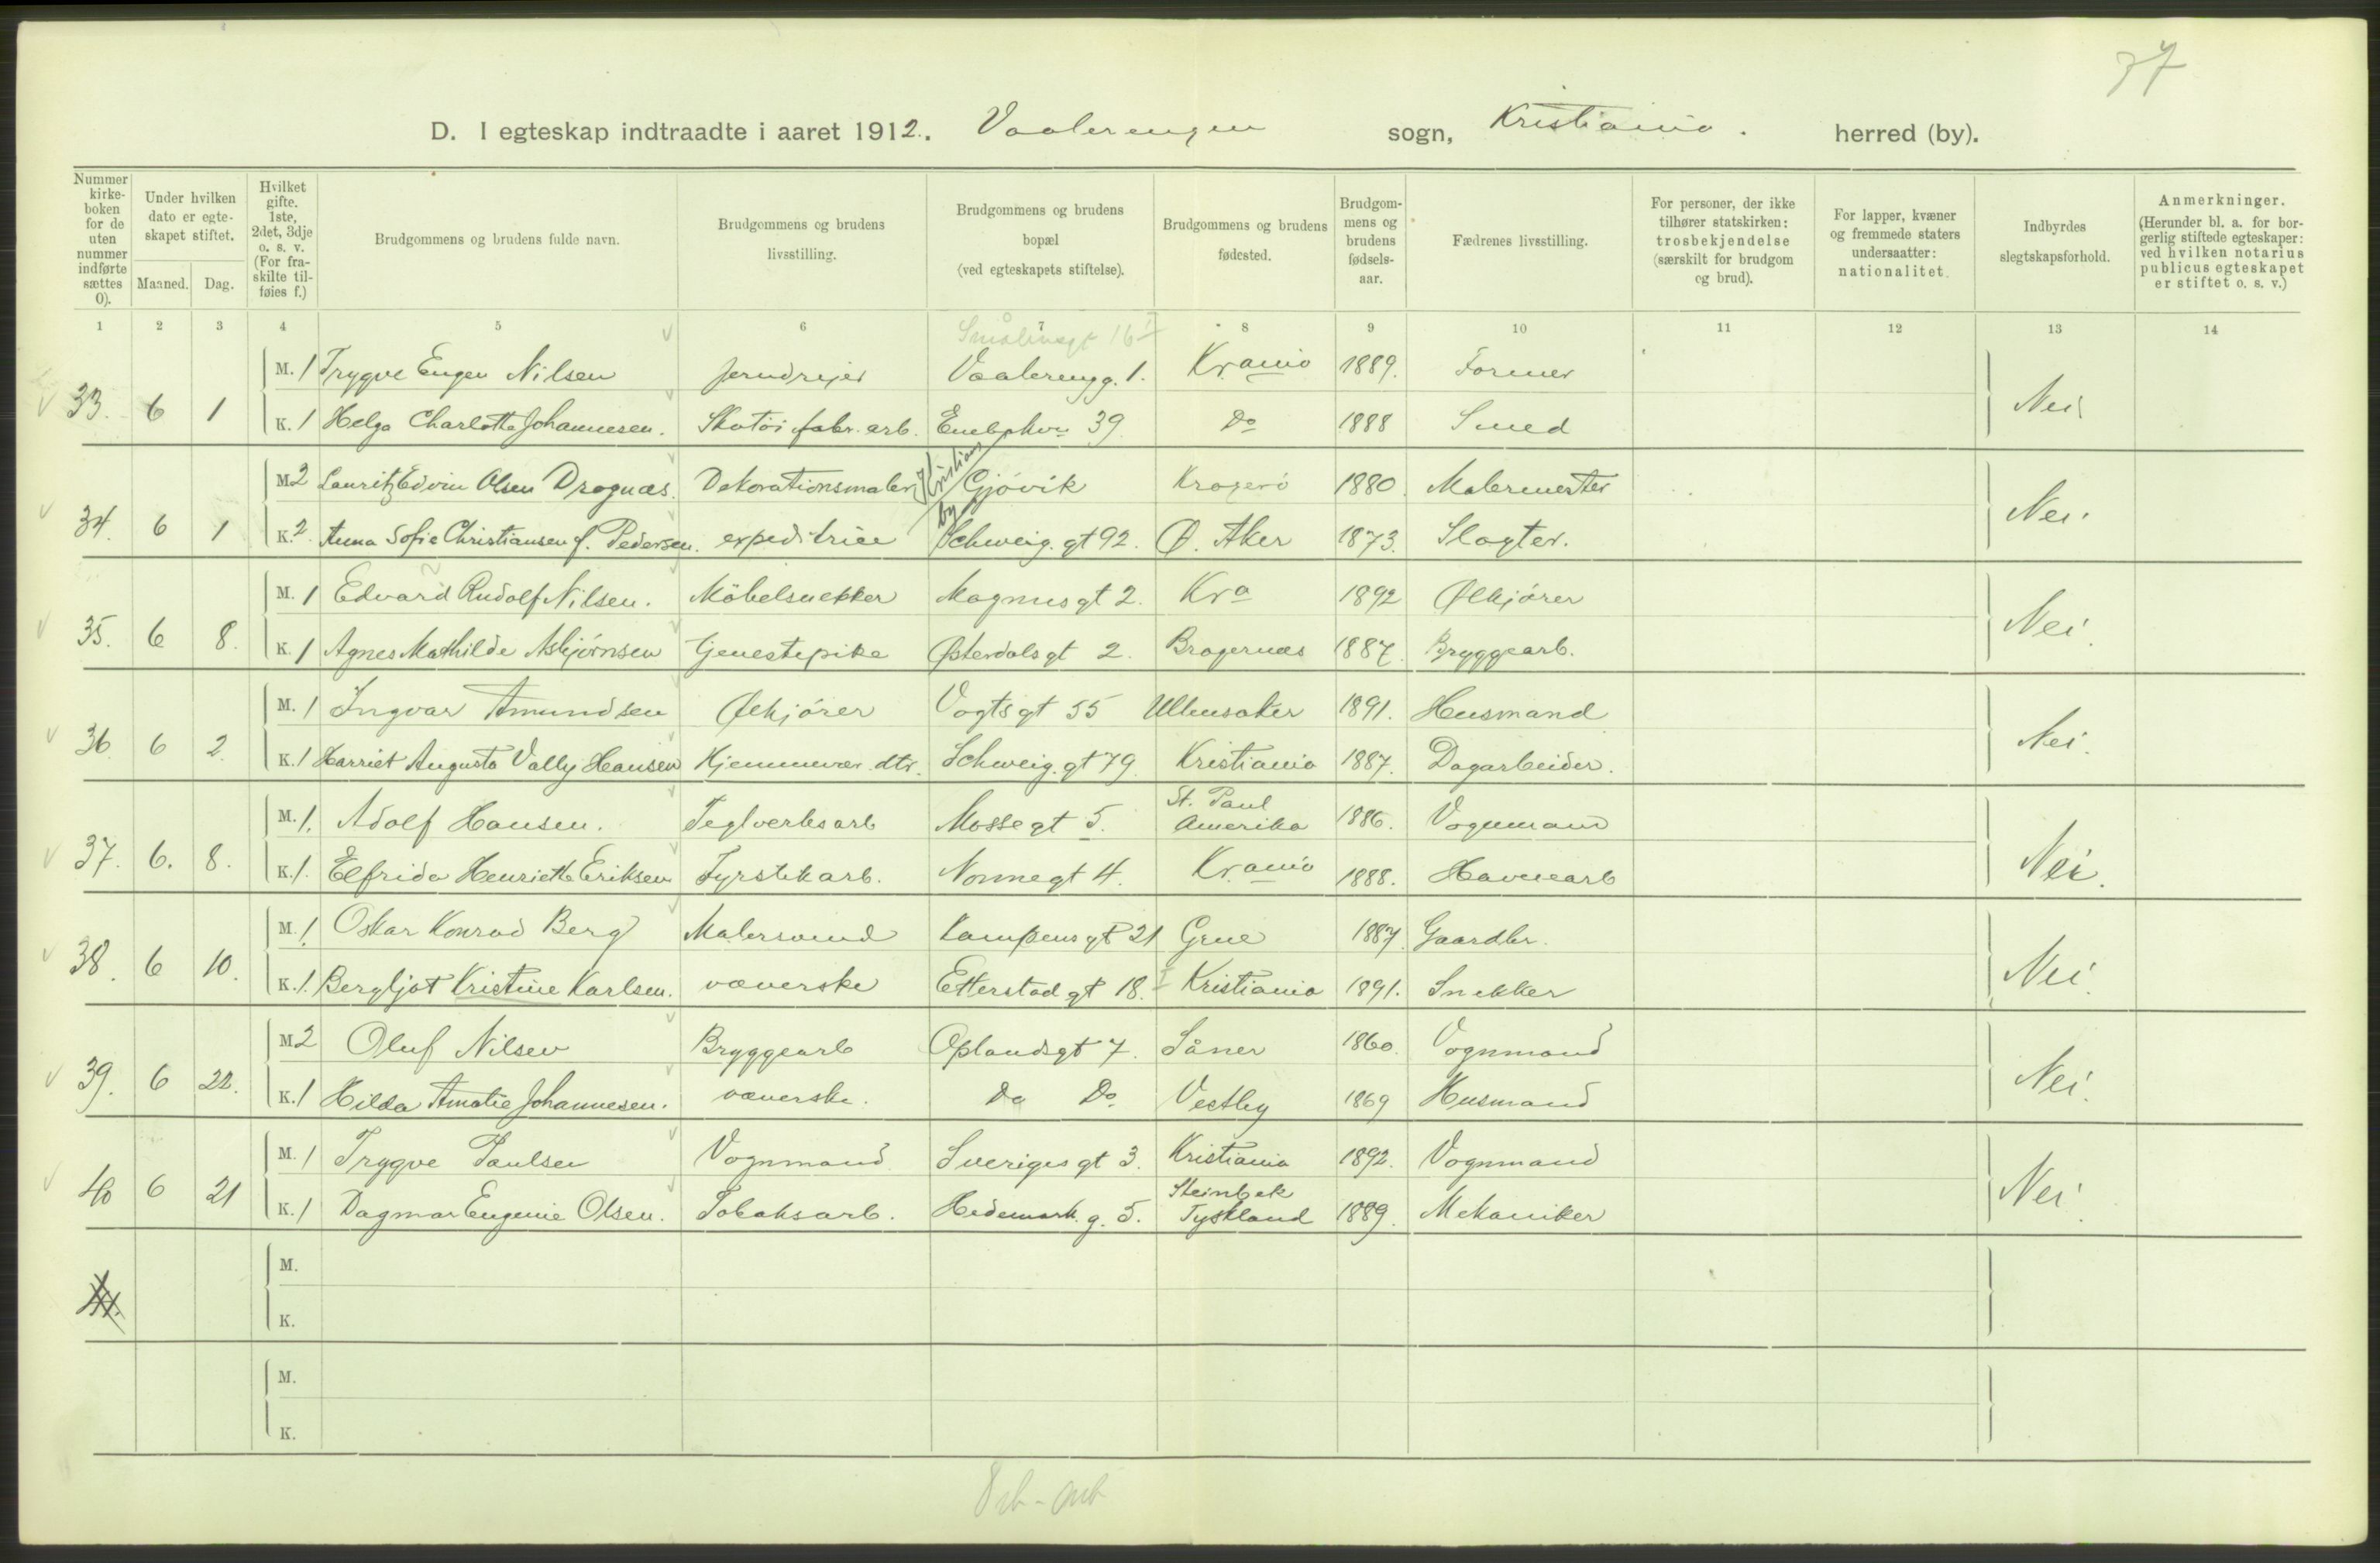 37
D. I egteskap indtraadte i aaret 1912. Vaalerengen sogn, Kristiania. herred (by).
Nummer kirke-boken for de uten nummer indførte sættes 0).
Under hvilken dato er egte-skapet stiftet.
Maaned. Dag.
Hvilket gifte. 1ste, 2det, 3dje o. s. v. (For fra-skilte til-føies f.)
Brudgommens og brudens fulde navn.
Brudgommens og brudens livsstilling.
Brudgommens og brudens bopæl (ved egteskapets stiftelse).
Brudgommens og brudens fødested.
Brudgom-mens og brudens fødsels-aar.
Fædrenes livsstilling.
For personer, der ikke tilhører statskirken: trosbekjendelse (særskilt for brudgom og brud).
For lapper, kvæner og fremmede staters undersaatter: nationalitet.
Indbyrdes slegtskapsforhold.
Anmerkninger. (Herunder bl. a. for bor-gerlig stiftede egteskaper: ved hvilken notarius publicus egteskapet er stiftet o. s. v.)
1 2 3 4 5 6 7 8 9 10 11 12 13 14
Smålensgt 16 I
M. 1 Trygve Eugen Nilsen Jerndrejer Vaalerengg. 1. Kr.ania 1889. Former
33. 6 1 Nei
K. 1 Helga Charlotte Johannesen. Skotøi fabr. arb. Enebakvn 39 Do 1888 Smed
M 2 Lauritz Edvin Olsen Dragnæs. Dekorationsmaler Kristians by Gjøvik Kragerø 1880. Malermester
34. 6 1 Nei.
K. 2. Anna Sofie Christiansen f. Pedersen. expeditrice Schweig. gt 92. Ø. Aker 1873. Slagter.
M. 1 Edvard Rudolf Nilsen. Möbelsnekker Magnusgt 2. Kra 1892 Ølkjører
35. 6 8. Nei.
K. 1 Agnes Mathilde Asbjørnsen Tjenestepike Østerdalsgt 2. Bragernæs 1887. Bryggearb.
M. 1 Ingvar Amundsen Ølkjører Vogtsgt 55 Ullensaker 1891. Husmand
36 6 2. Nei.
K. 1 Harriet Augusta Vally Hansen Hjemmevær. dtr. Schweig. gt 79. Kristiania 1887. Dagarbeider.
M. 1. Adolf Hansen. Teglverksarb Mossegt 5. St. Paul Amerika 1886. Vognmand
37. 6. 8. Nei.
K. 1. Elfrida Henriette Eriksen Fyrstikarb. Nonnegt 4. Kr.ania 1888. Havnearb
M. 1. Oskar Konrad Berg Malersvend Kampensgt 21 Grue 1887. Gaardbr.
38. 6 10. Nei.
K. 1. Bergljot Kristine Karlsen. væverske Etterstadgt 18. I Kristiania 1891. Snekker
M 2 Oluf Nilsen Bryggearb Oplandsgt 7. Såner 1860. Vognmand
39. 6 22. Nei.
K. 1 Hilda Amalie Johannesen. væverske. Do Do Vestby 1869 Husmand
M. 1 Trygve Paulsen Vognmand Sverigesgt 3. Kristiania 1892. Vognmand
40 6 21 Nei.
K. 1 Dagmar Eugenie Olsen. Tobaksarb. Hedemark. g. 5. Steinbek Tyskland 1889. Mekaniker
M.
41.
K.
M.
K.